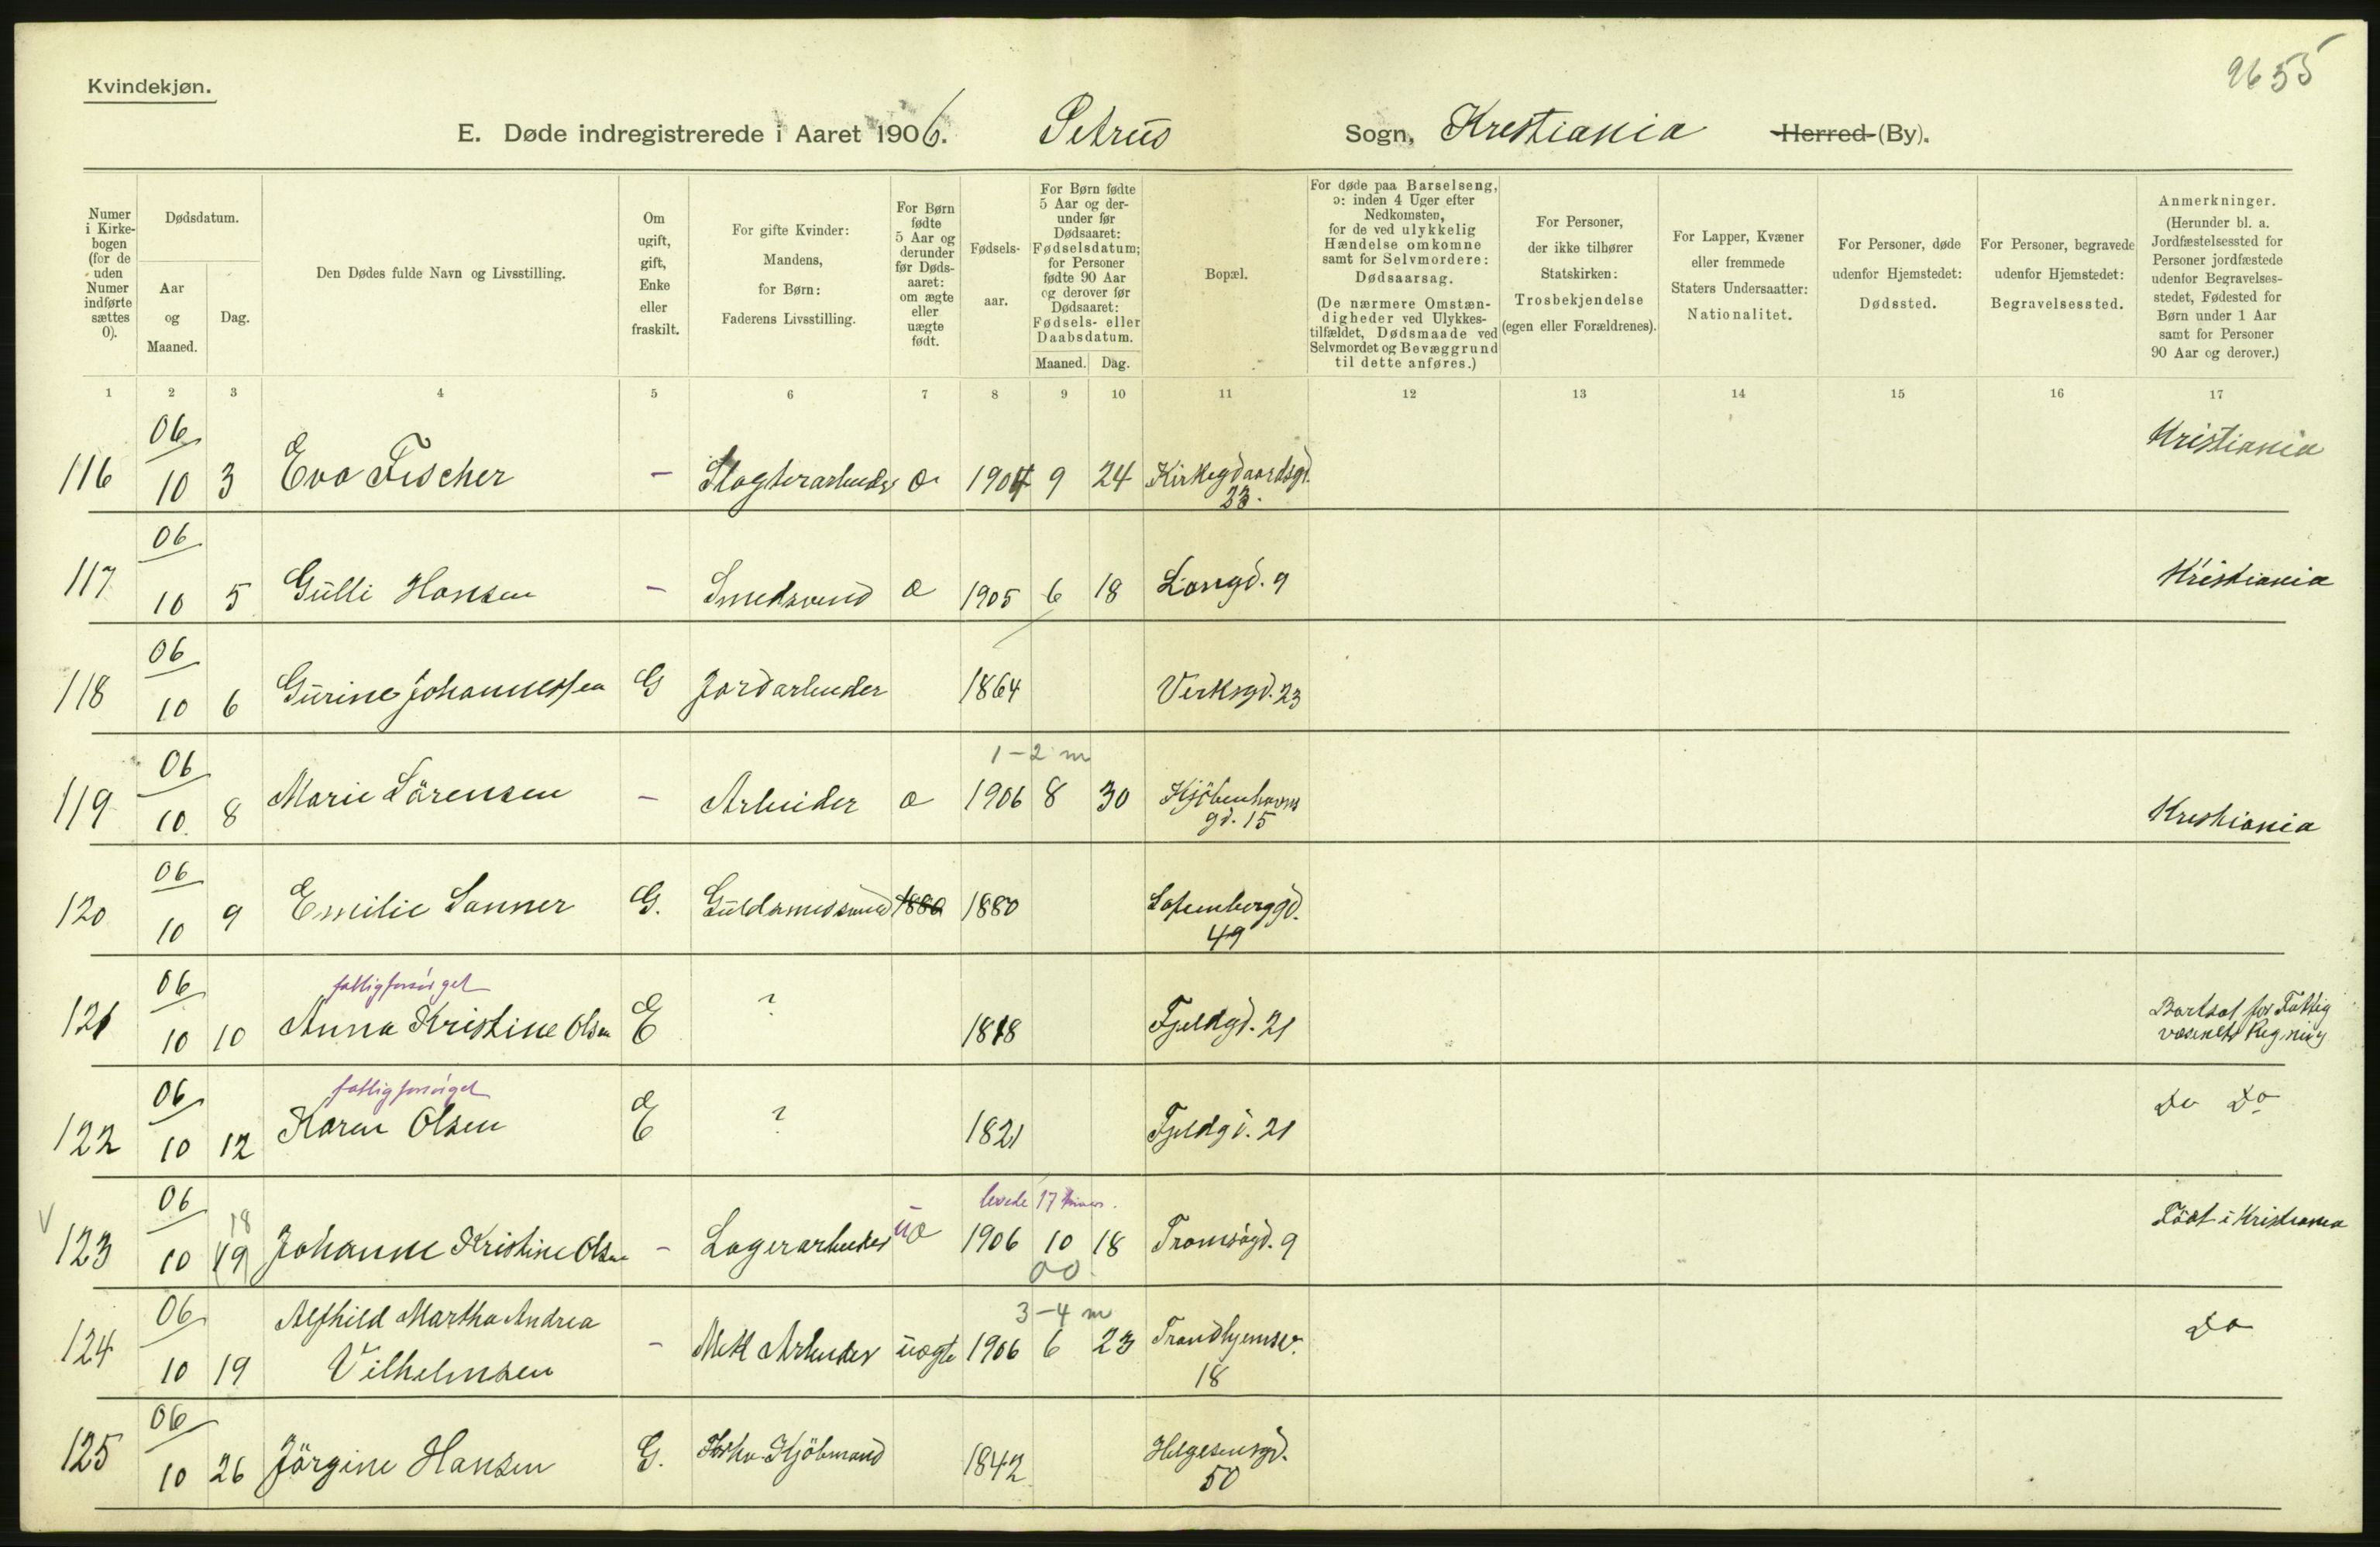 9655
Kvindekjøn.
E. Døde indregistrerede i Aaret 1906. Petrus Sogn, Kristiania Herred (By).
Numer i Kirkebogen (for de uden Numer indførte sættes 0).
Dødsdatum.
Aar og Maaned.
Dag.
Den Dødes fulde Navn og Livsstilling.
Om ugift, gift, Enke eller fraskilt.
For gifte Kvinder: Mandens, for Børn: Faderens Livsstilling.
For Børn fødte 5 Aar og derunder før Dødsaaret: om ægte eller uægte født.
Fødselsaar.
For Børn fødte 5 Aar og derunder før Dødsaaret: Fødselsdatum; for Personer fødte 90 Aar og derover før Dødsaaret: Fødsels- eller Daabsdatum.
Maaned. Dag.
Bopæl.
For døde paa Barselseng, ɔ: inden 4 Uger efter Nedkomsten, for de ved ulykkelig Hændelse omkomne samt for Selvmordere: Dødsaarsag.
(De nærmere Omstændigheder ved Ulykkestilfældet, Dødsmaade ved Selvmordet og Bevæggrund til dette anføres.)
For Personer, der ikke tilhører Statskirken: Trosbekjendelse (egen eller Forældrenes).
For Lapper, Kvæner eller fremmede Staters Undersaatter: Nationalitet.
For Personer, døde udenfor Hjemstedet: Dødssted.
For Personer, begravede udenfor Hjemstedet: Begravelsessted.
Anmerkninger.
(Herunder bl. a. Jordfæstelsessted for Personer jordfæstede udenfor Begravelsesstedet, Fødested for Børn under 1 Aar samt for Personer 90 Aar og derover.)
1 2 3 4 5 6 7 8 9 10 11 12 13 14 15 16 17
06 Kristiania
116 10 3 Eva Fischer - Slagterarbeider 1904 9 24 Kirkegdaardsgd.
23.
06
117 10 5 Gulli Hansen - Smedsvend 1905 6 18 Langd. 9 Kristiania
06
118 10 6 Gurine Johannessen G Jordarbeider 1864 Verksgd. 23
06 1-2 m
119 10 8 Marie Sörensen - Arbeider 1906 8 30 Kjöbenhavns
gd. 15 Kristiania
06
120 10 9 Emilie Sanner G. Guldsmedsvend 1880 1880 Sofienberggd.
49
06 fattigforsörget
121 10 10 Anna Kristine Olsen E ? 1818 Fjeldgd. 21 Bortsat for Fattig
væsenets Regning
06 fattigforsörget
122 10 12 Karen Olsen E ? 1821 Fjeldgd. 21 Do Do
06 18 levede 17 timer.
V 123 10 19 Johanne Kristine Olsen - Lagerarbeider 1906 10 18 Tromsögd. 9 Födt i Kristiania
00
06 Alfhild Martha Andrea 3-4 m
124 10 19 Vilhelmsen - Mek Arbeider uægte 1906 6 23 Trondhjemsv.
18 Do
06
125 10 26 Jörgine Hansen G. Kjöbmand 1842 Helgesensgd.
50